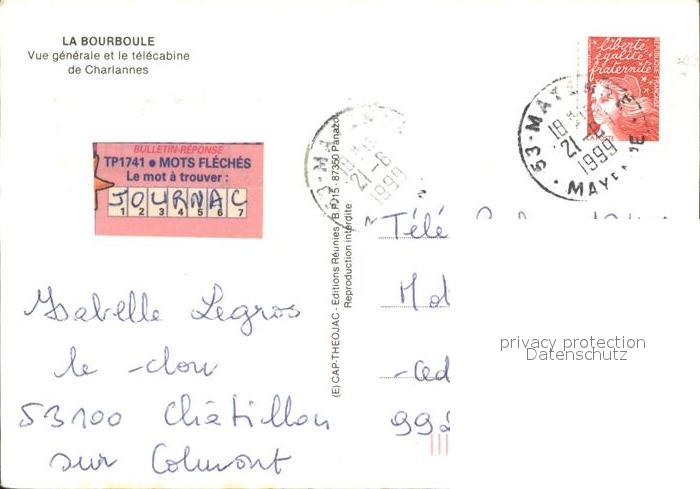 LA BOURBOULE
Vue générale et le télécabine
de Charlannes
liberté
égalité
fraternité
RÉPUBLIQUE FRANÇAISE
LA POSTE
53-MAYENNE
18 H
21-6
1999
MAYENNE
21-6
1999
BULLETIN-RÉPONSE
TP1741 ● MOTS FLÉCHÉS
Le mot à trouver :
JOURNAL
1 2 3 4 5 6 7
(E) CAP-THEOJAC - Editions Réunies / B.P. 15 - 87350 Panazol
Reproduction interdite
Télé
Isabelle Legros
le clou
53100 Châtillon
sur Colmont
privacy protection
Datenschutz